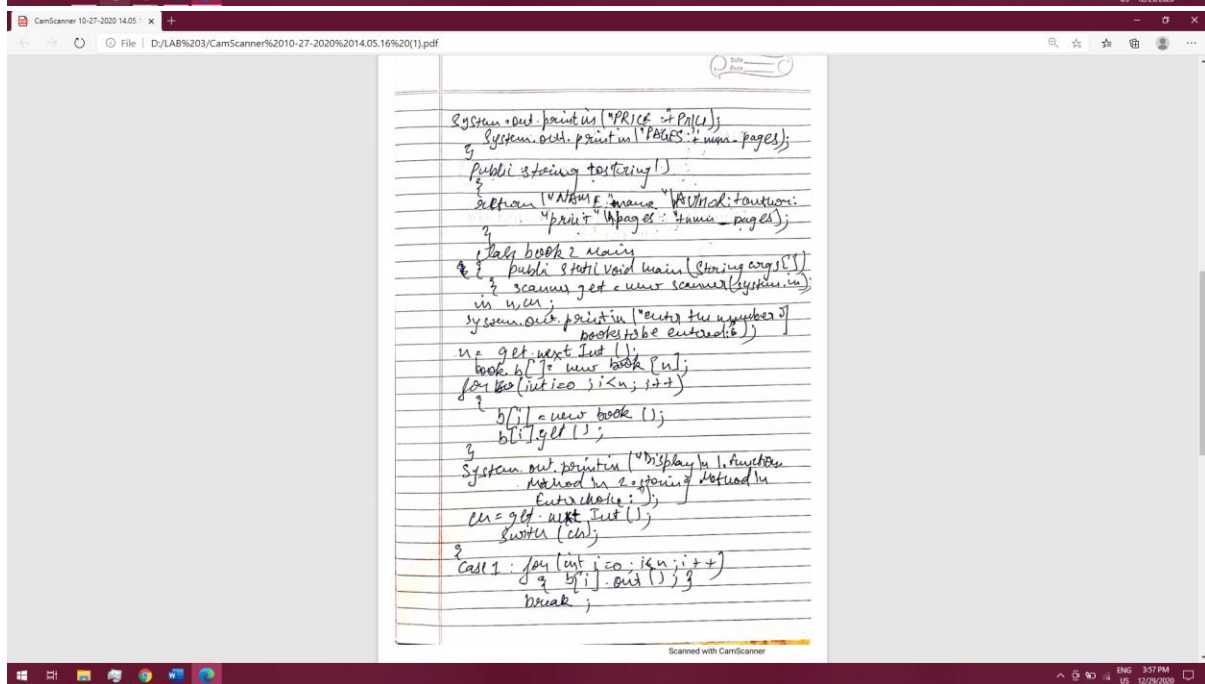 US 12/29/2020
CamScanner 10-27-2020 14.05.1
File | D:/LAB%203/CamScanner%2010-27-2020%2014.05.16%20(1).pdf
Date
Page
System.out.println("PRICE :"+Price);
System.out.println("PAGES:"+num_pages);
}
Public string tostring()
{
return ("NAME: "name "\AUTHOR:+author:
"price" \npages: "+num_pages);
}
class book 2 main
{ public static void main(String args[])
{ scanner get = new scanner(system.in);
in n,ch;
system.out.println("enter the number of
books to be entered:");
n = get.next Int ();
book b[]= new book [n];
for (int i=0 ; i<n ; i++)
{
b[i] = new book ();
b[i].get ();
}
System.out.println ("Display \n 1. function
Method \n 2. tostring Method \n
Enter choice: ");
ch = get.next Int ();
switch (ch);
{
Case 1 : for (int i=0; i<n; i++)
{ b[i].out (); }
break ;
Scanned with CamScanner
ENG 3:57 PM
US 12/29/2020